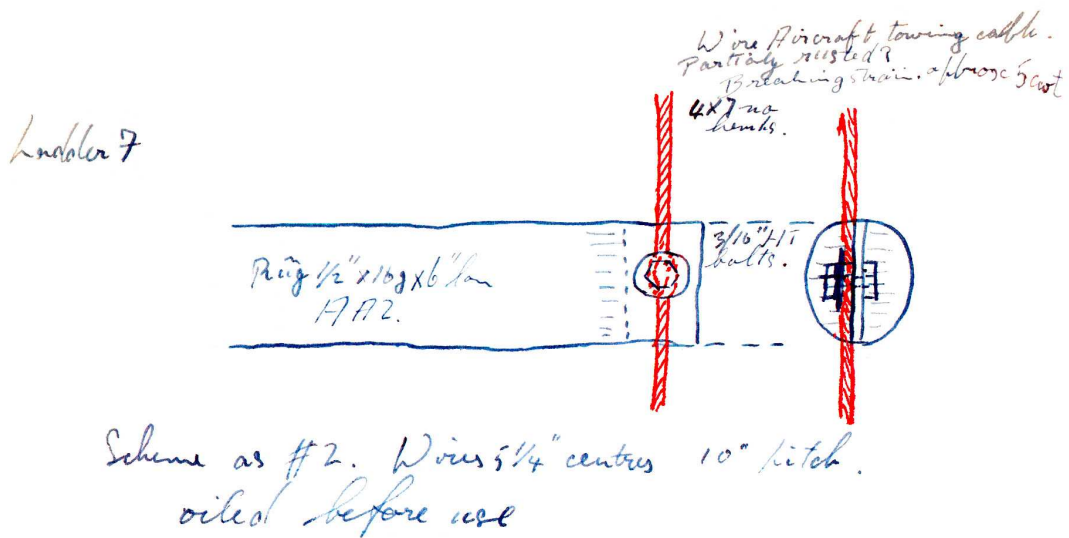 Wire Aircraft towing cable.
Partialy rusted?
Breaking strain. approx 5 cwt
4x7 no
hemks.
Ladder 7
3/16" HT
bolts.
Rung 1/2" x 16g x 6" lon
AA2.
Scheme as #2. Wires 5 1/4" centres 10" pitch.
oiled before use